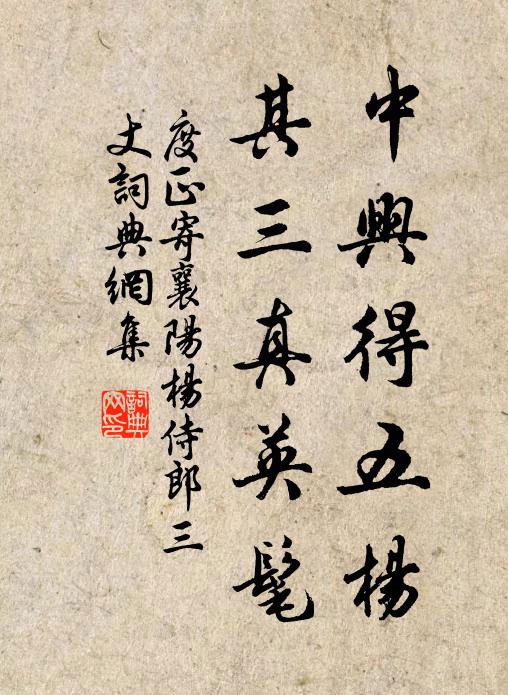 中興得五楊
其三真英髦
度正寄襄陽楊侍郎三
丈詞典網集
詞典
网印